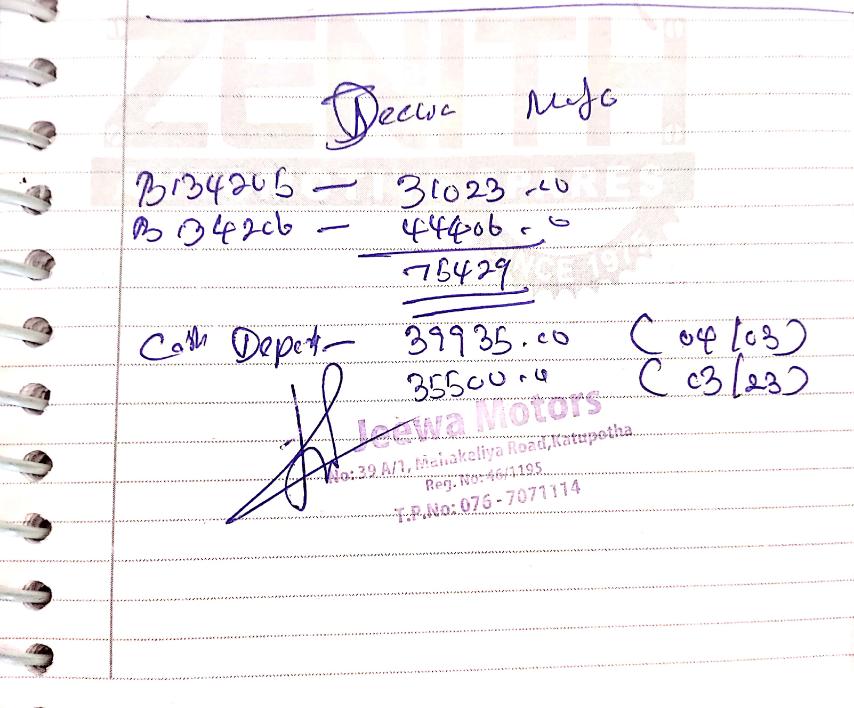 "ZENITH"
Jeewa Motors
B134205 — 31023.00
B134206 — 44406.00
75429
Cash Deposit — 39935.00 (04/03)
35500.00 (03/23)
Jeewa Motors
No: 39 A/1, Mahakeliya Road,Katupotha
Reg. No: 46/1195
T.P.No: 076 - 7071114